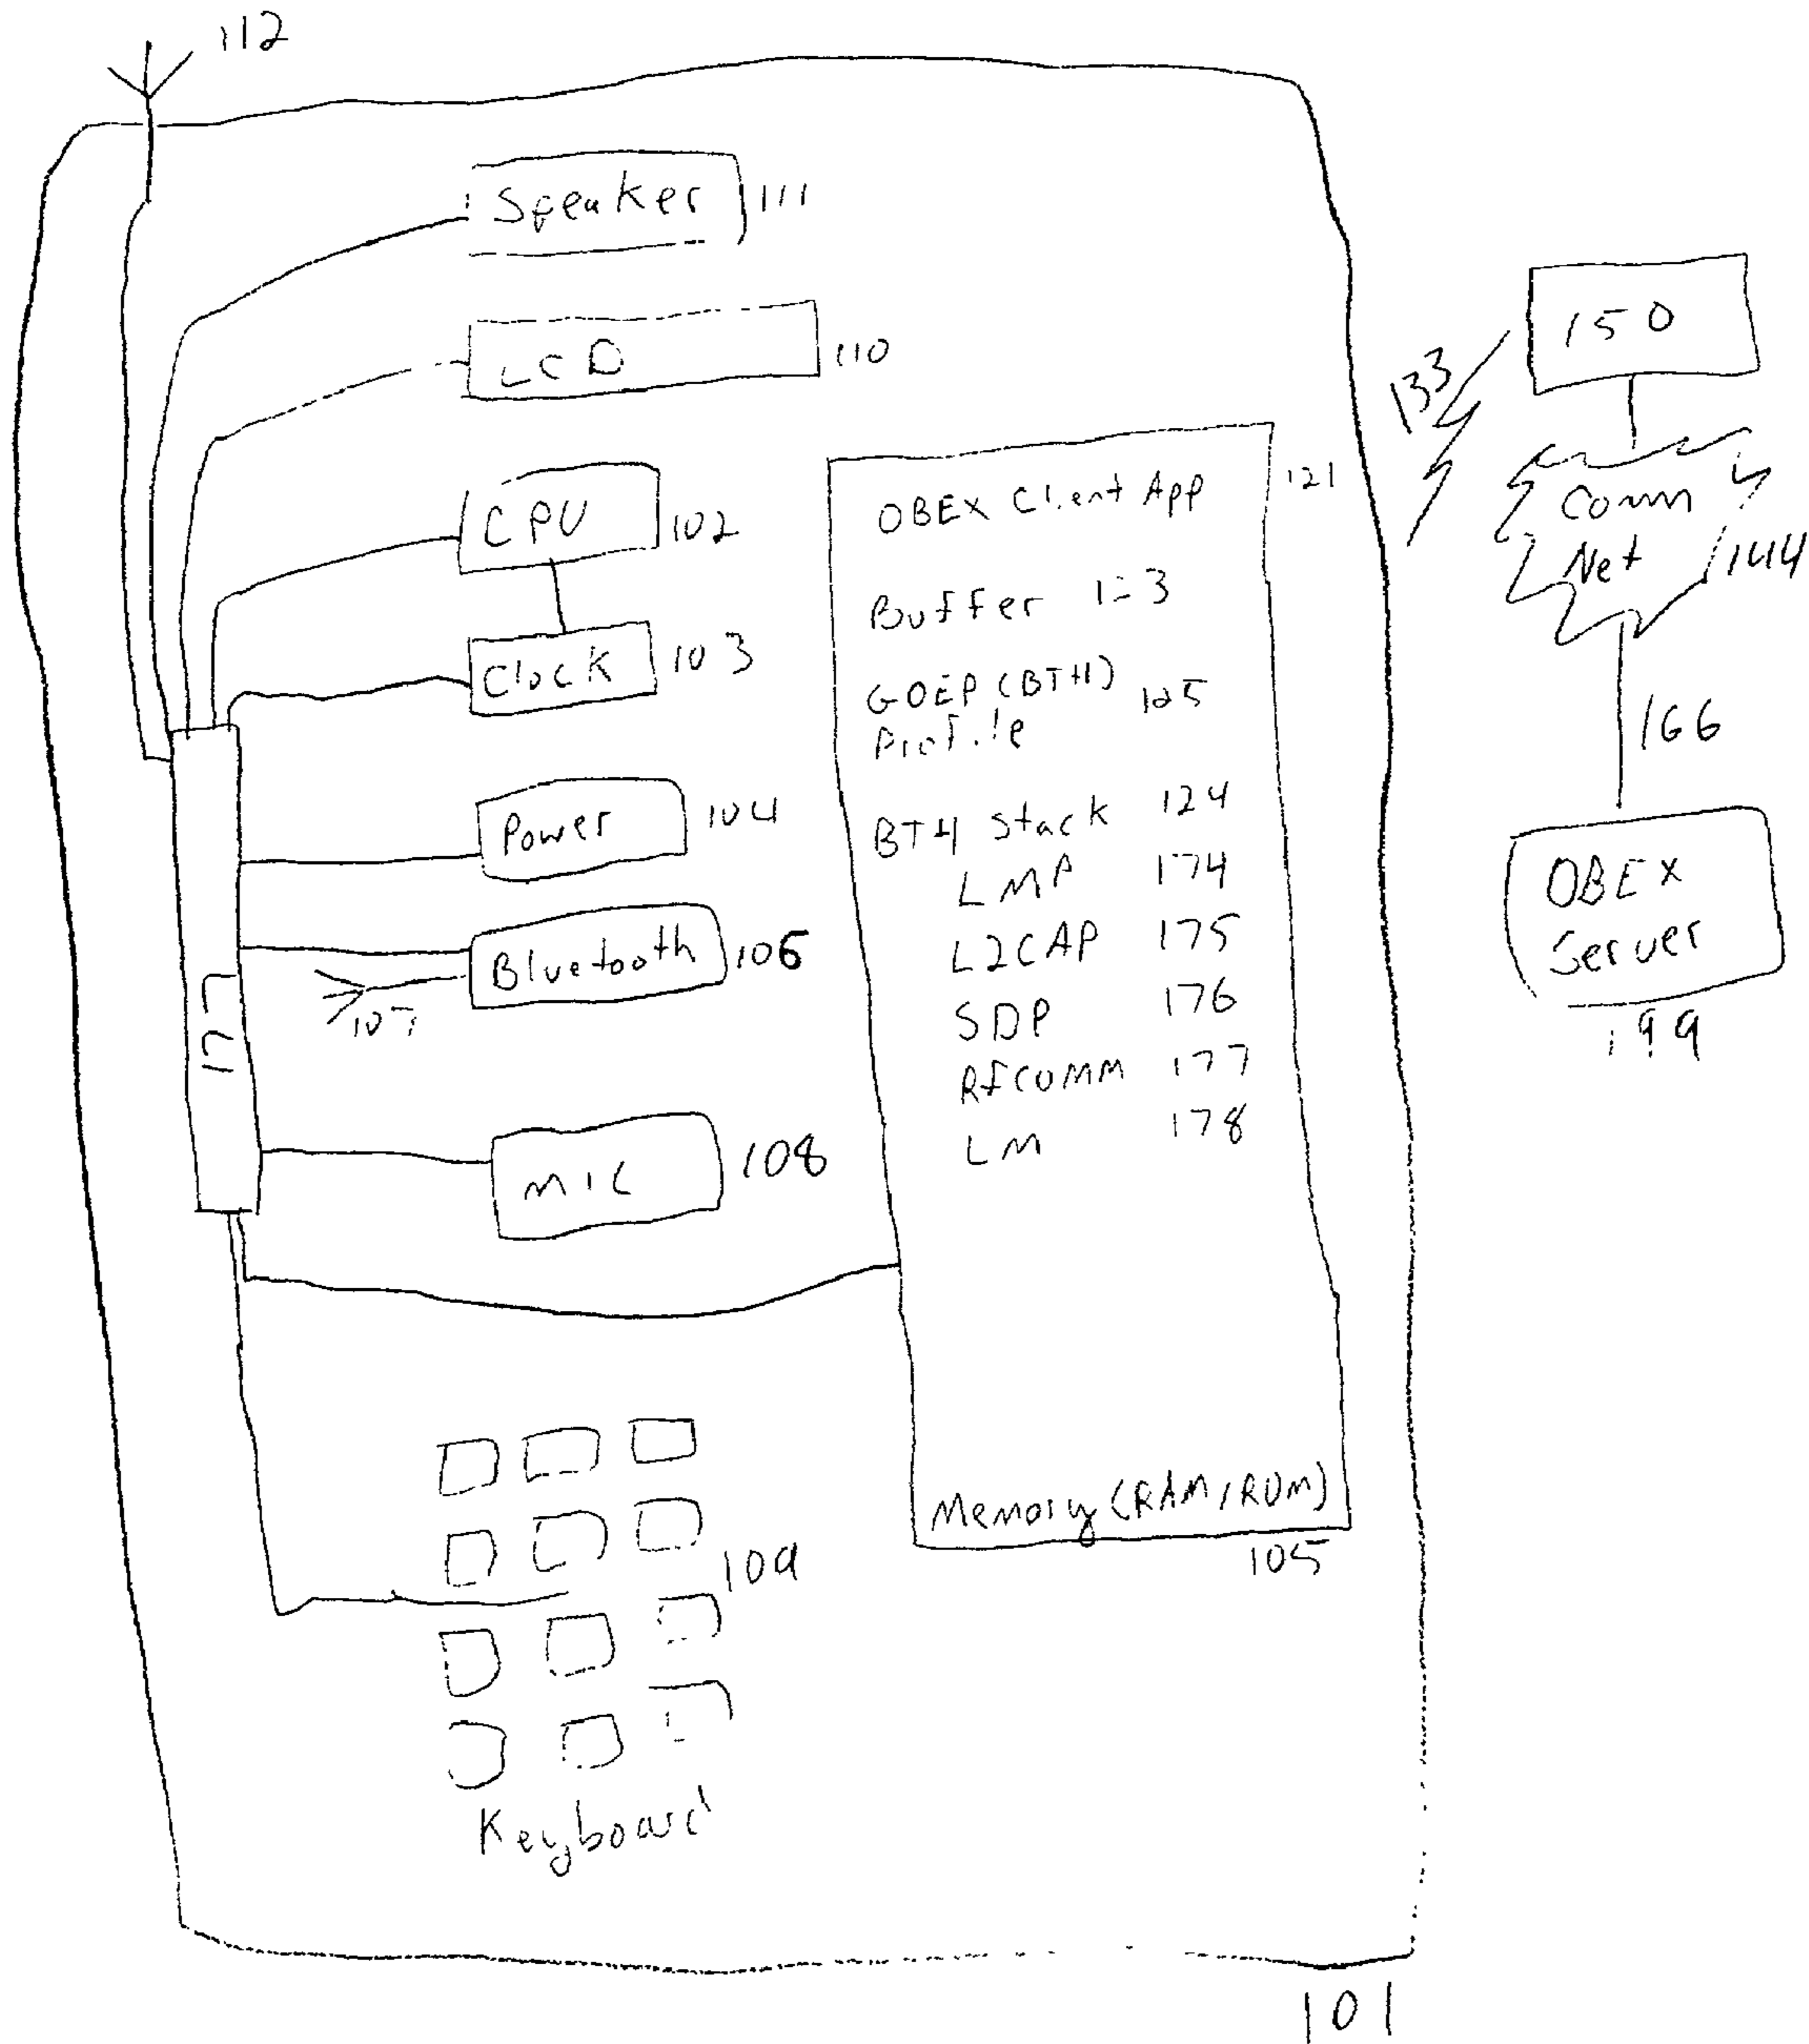 112
Speaker 111
LCD 110
CPU 102
Clock 103
Power 104
Bluetooth 106
107
177
MIC 108
109
Keyboard
OBEX Client App 121
Buffer
GOEP (BTH) 125
Profile
BTH Stack 124
LMP 174
L2CAP 175
SDP 176
RFCOMM 177
LM 178
Memory (RAM/ROM)
105
101
133
150
Comm
Net 144
166
OBEX
Server
199